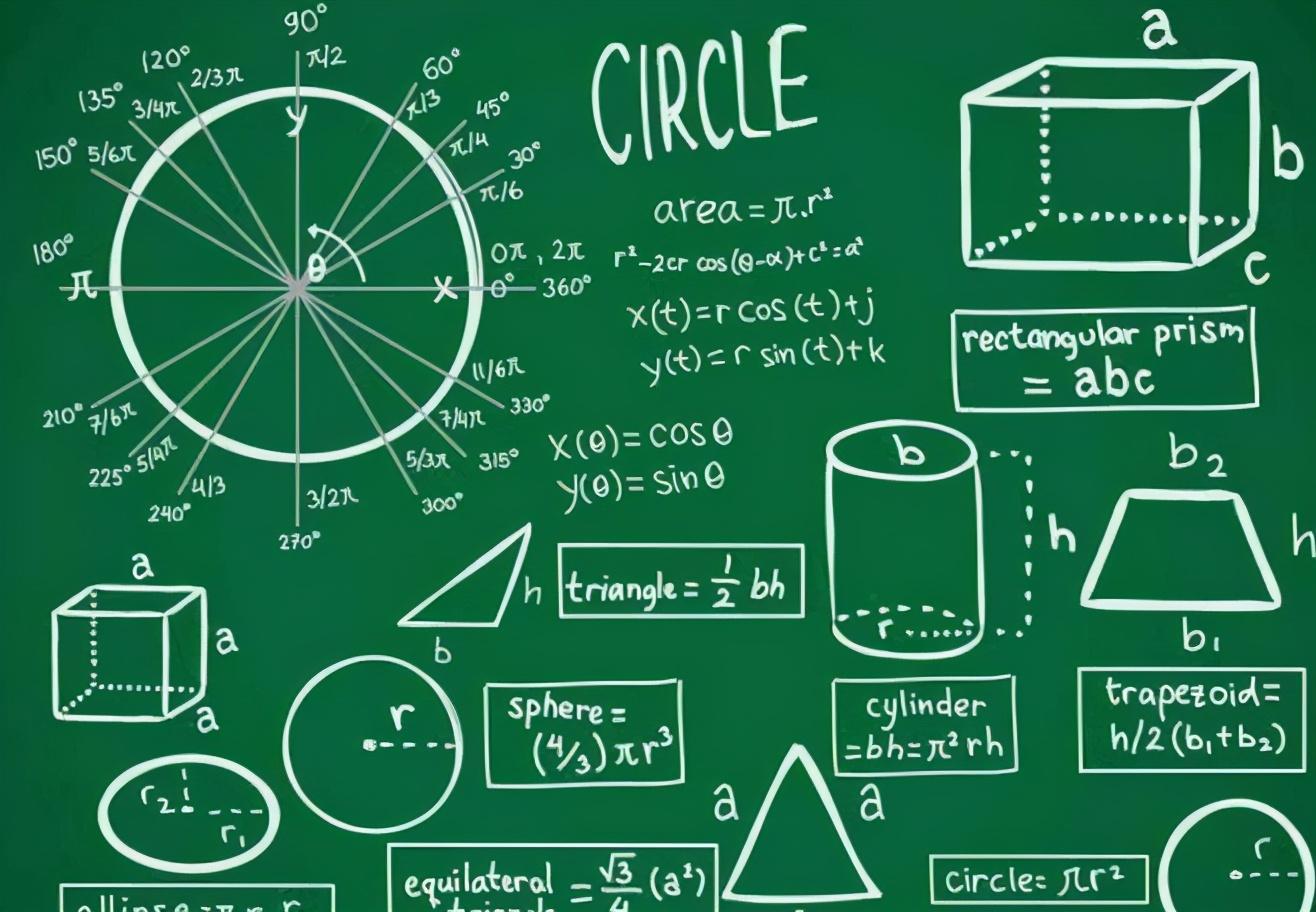 90°
π/2
120°
2/3π
60°
π/3
135°
3/4π
y
45°
π/4
150° 5/6π
30°
π/6
180°
π
θ
x
0π, 2π
0°
360°
11/6π
210° 7/6π
7/4π
330°
225° 5/4π
5/3π
315°
240°
4/3
3/2π
300°
270°
CIRCLE
area = π.r²
r²-2cr cos(θ-α)+c²=a²
x(t)=r cos(t)+j
y(t)=r sin(t)+k
x(θ)=cosθ
y(θ)=sinθ
a
b
c
rectangular prism
= abc
b
h
r
b₂
h
b₁
a
a
a
h
b
triangle = 1/2 bh
r
sphere =
(4/3) πr³
cylinder
=bh=π²rh
trapezoid=
h/2 (b₁+b₂)
r₂
r₁
a
a
ellipse = π r r
equilateral = √3/4 (a²)
triangle
circle= πr²
r